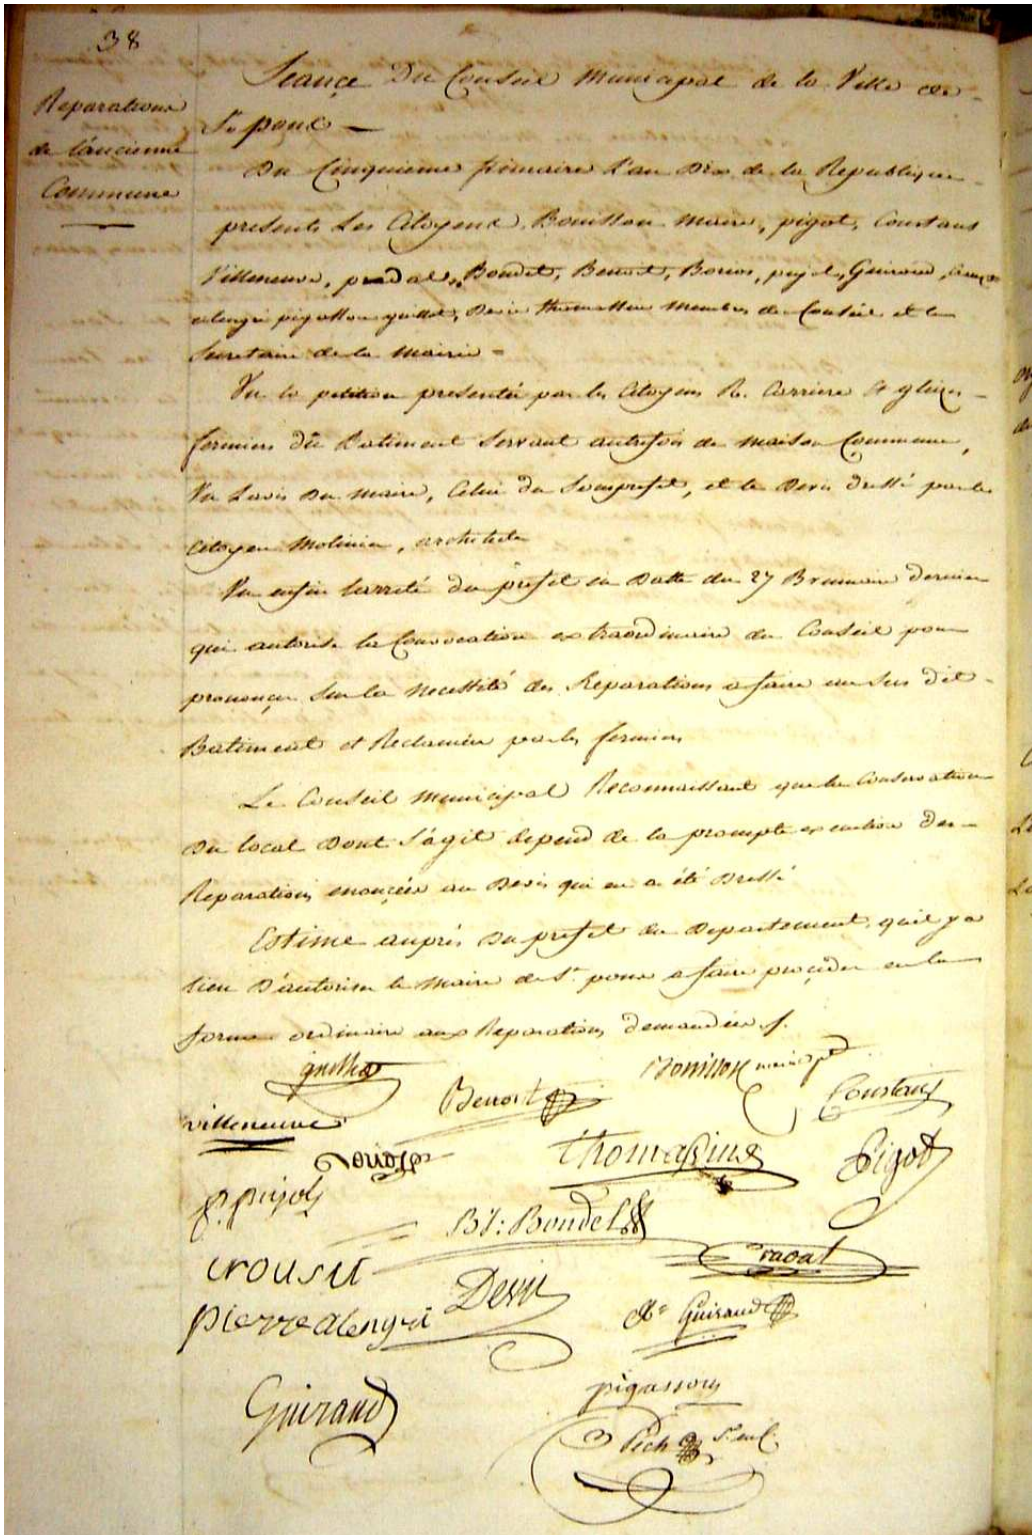 38
Reparations
de l'ancienne
Commune
Seance Du Conseil municipal de la Ville de
St pons
Du Cinquieme frimaire l'an Dix de la Republique
presents Les Citoyens Bouisson maire, pigot, Constans
Villeneuve, pradal, Bondet, Benoit, pujol, Guiraud,
alengri pigassou guilhot, Devic thomassin membres du Conseil et le
Secretaire de la mairie
Vu la petition presentée par les Citoyens R. Carriere & gleizes
fermiers du Batiment Servant autrefois de maison Commune,
Vu Lavis Du maire, Celui du Souprefet, et le Devis dressé par le
Citoyen Molinier, architecte
Vu enfin larreté du prefet en Datte du 27 Brumaire dernier
qui autorise la Convocation extraordinaire du Conseil pour
prononçer Sur la necessité des Reparations a faire au Sus dit
Batiment et Reclamées par les fermiers
Le Conseil municipal Reconnaissant que la Conservation
Du local Dont S'agit depend de la prompte execution des
Reparations enonçées au Devis qui en a été Dressé
Estime auprès Du prefet du Departement, qu'il y a
lieu D'autoriser le Maire de St pons a faire proçeder en la
forme ordinaire aux Reparations demandées ./.
guilhot
Bouisson maire
Benoit
Constans
villeneuve
thomassin
Pigot
P. pujol
Bt: Bondet
pradal
crouset
Devic
pierre alengri
Guiraud
Guiraud
pigassou
Pech